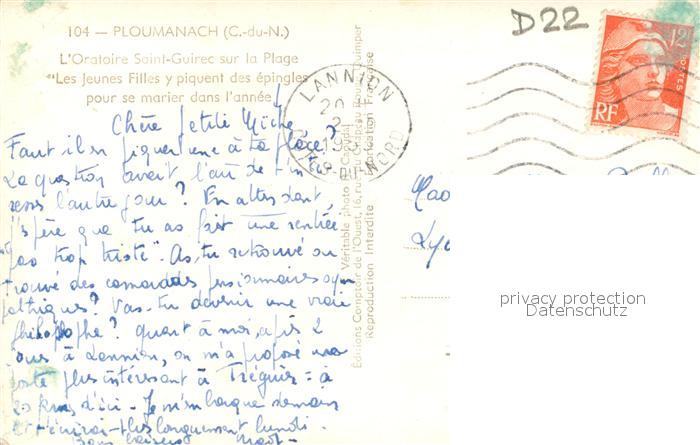 104 — PLOUMANACH (C.-du-N.)
L'Oratoire Saint-Guirec sur la Plage
"Les Jeunes Filles y piquent des épingles
pour se marier dans l'année"
D22
LANNION
20
CÔTES-DU-NORD
12
POSTES
RF
Chère petite Miche
Faut il en piquer une à ta place?
La question avait l'air de t'inté
resser l'autre jour? En attendant,
j'espère que tu as fait une rentrée
"pas trop triste". As-tu retrouvé ou
trouvé des camarades pensionnaires sym
pathiques? Vas-tu devenir une vraie
philosophe? quant à moi, après 2
jours à Lannion, on m'a proposé un
poste plus intéressant à Tréguier = à
20 kms d'ici. Je m'embarque demain
et t'écrirai plus longuement lundi.
Bons baisers
Véritable photo
Editions Comptoir de l'Ouest, 16, rue du Chapeau Rouge, Quimper
Reproduction Interdite
Fabrication Française
privacy protection
Datenschutz